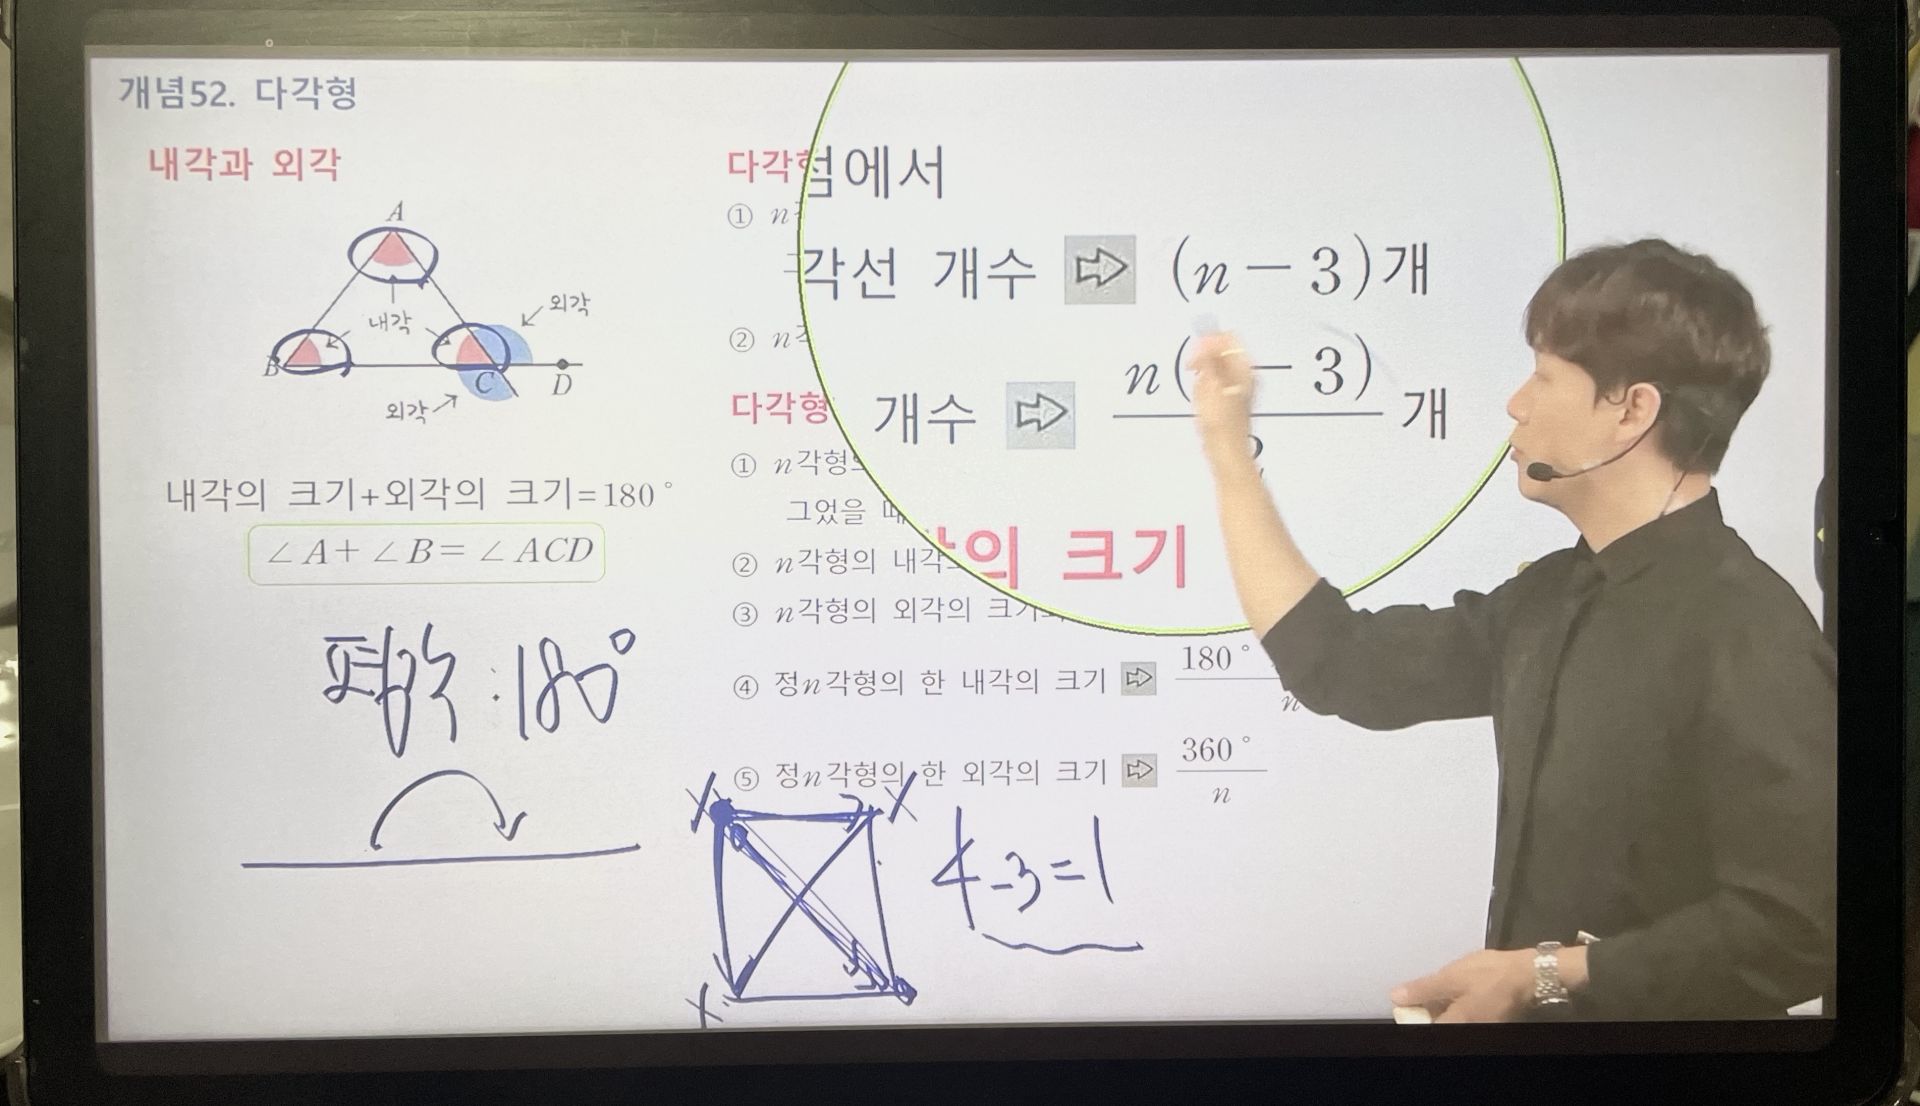 개념52. 다각형
내각과 외각
A
내각
외각
B
C
D
외각
내각의 크기+외각의 크기=180°
∠A+∠B=∠ACD
평각 : 180°
다각형
① n
② n각
점에서
각선 개수 ⇨ (n-3)개
개수 ⇨ n( -3)/2 개
각의 크기
다각형
① n각형의
그었을 때
② n각형의 내각
③ n각형의 외각의 크기
④ 정n각형의 한 내각의 크기 ⇨ 180° / n
⑤ 정n각형의 한 외각의 크기 ⇨ 360°/n
4-3=1